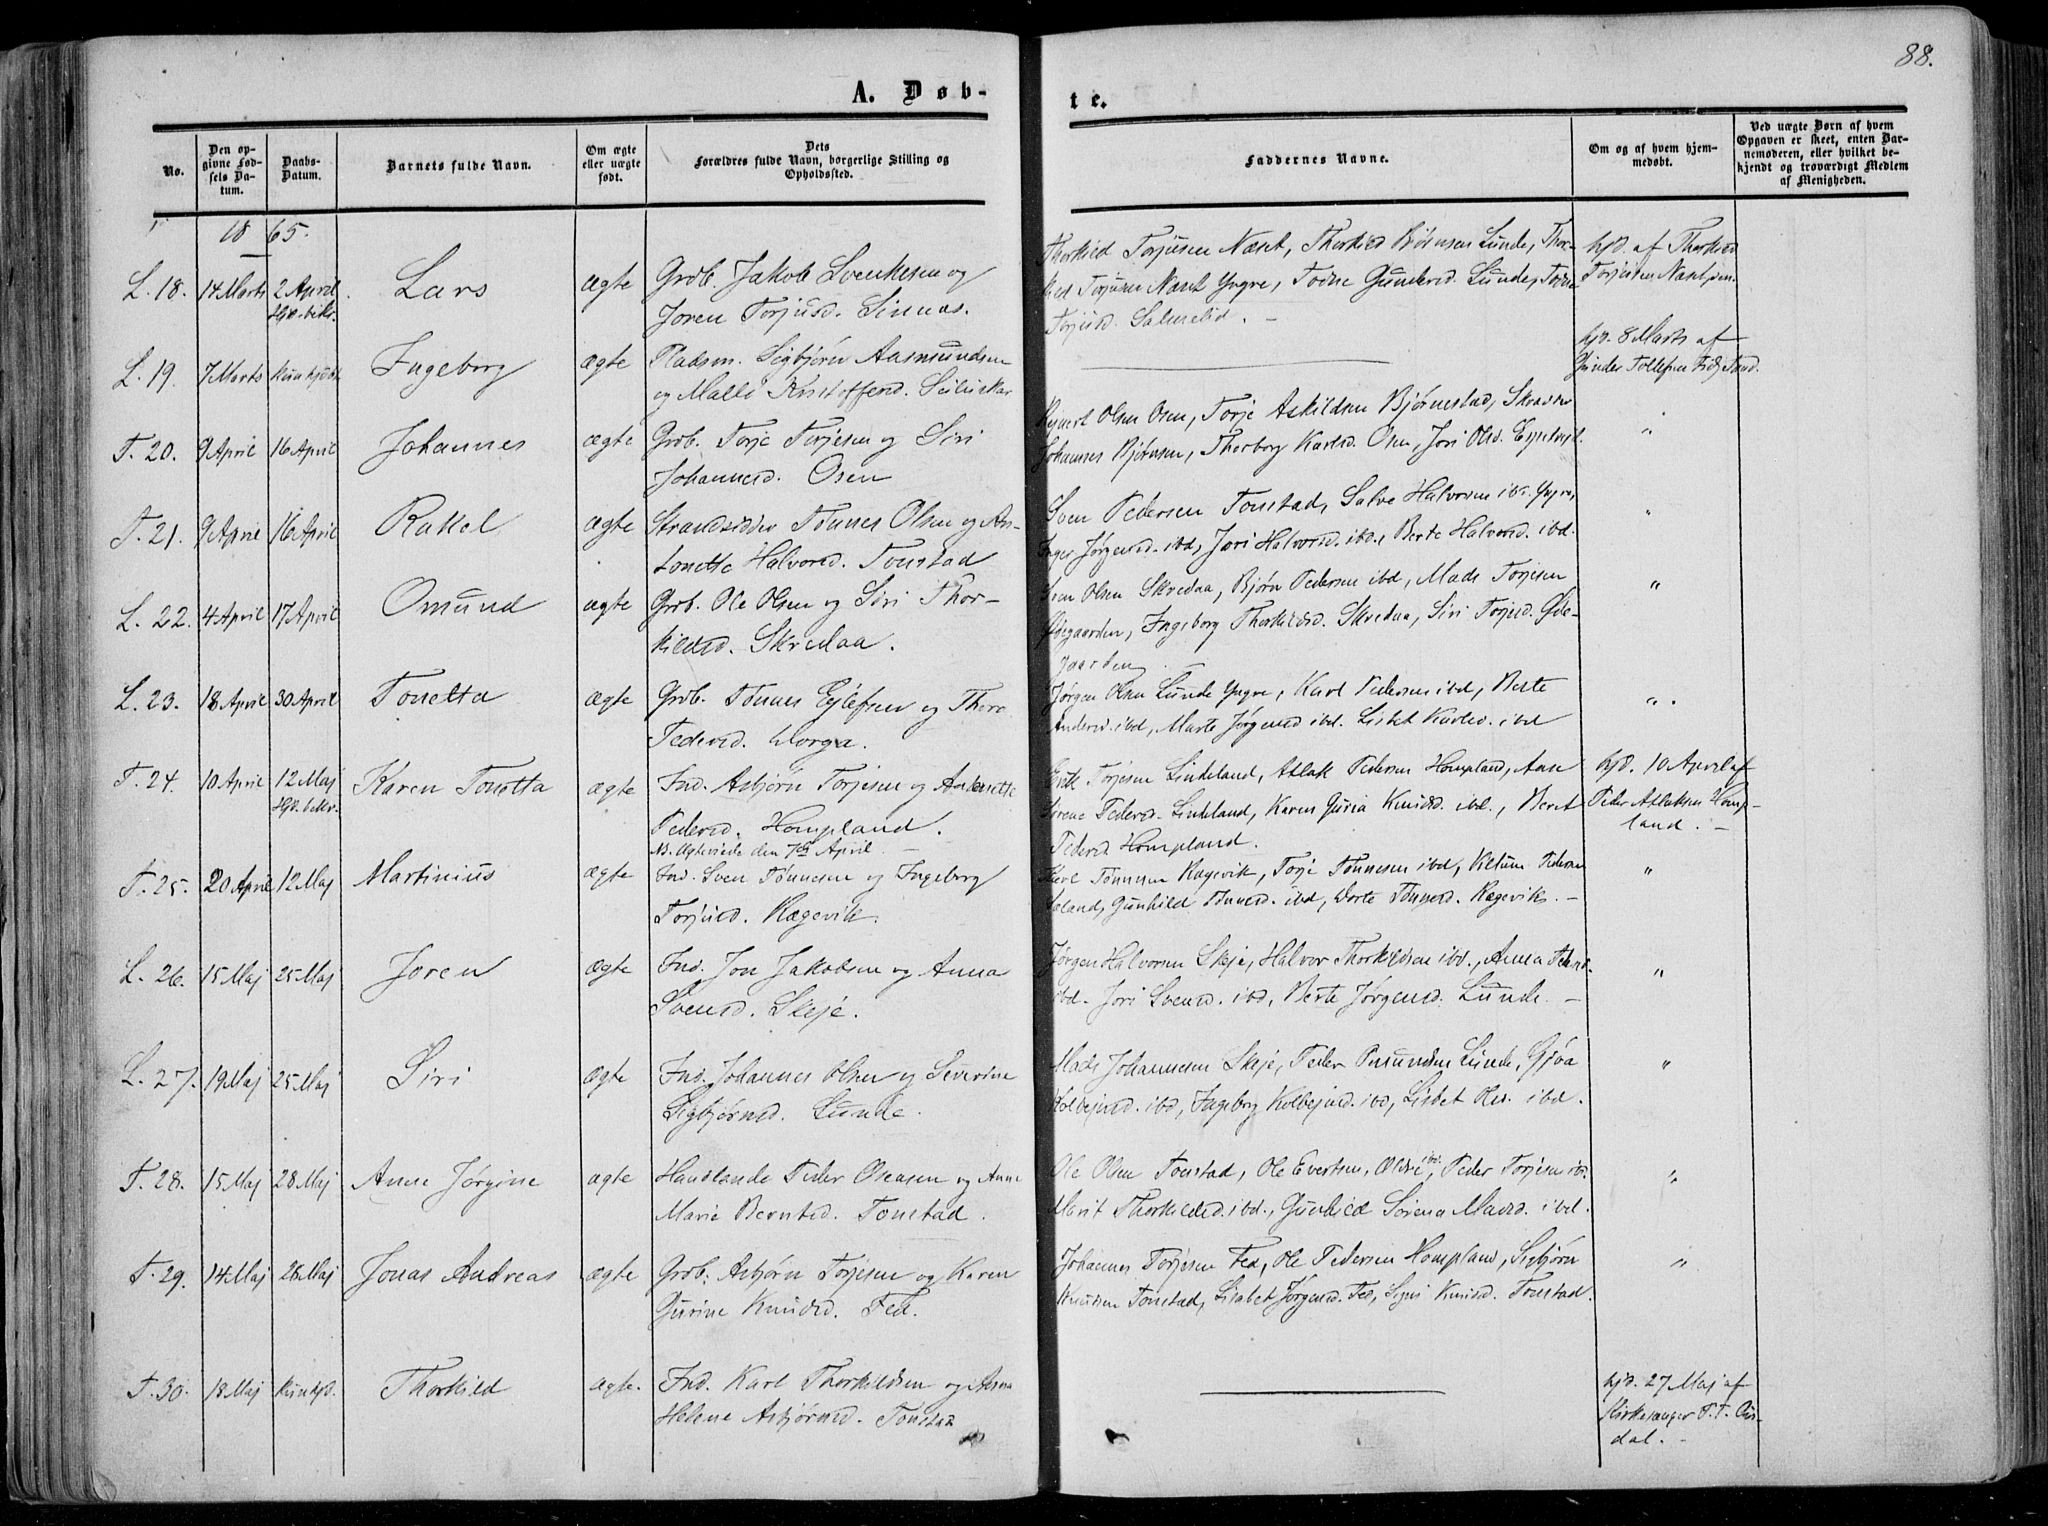 88.
A. Døb-
te.
No.
Den op-
givne Fød-
sels Da-
tum.
Daabs-
Datum.
Barnets fulde Navn.
Om ægte
eller uægte
født.
Dets
Forældres fulde Navn, borgerlige Stilling og
Opholdssted.
Faddernes Navne.
Om og af hvem hjem-
medøbt.
Ved uægte Børn af hvem
Opgaven er skeet, enten Bar-
nemoderen, eller hvilket be-
kjendt og troværdigt Medlem
af Menigheden.
1865.
L. 18. 14 Marts 2 April Lars ægte Grdb. Jakob Svenkesen og
Joren Torjusd. Sinnes.
Thorkild Torjusen Næset, Thorkild Lunde, Thor-
kild Torjusen Næset Yngre, Todne Gundersd. Lunde, Todne
Torjusd. Salmelid. -
hjd. af Thorkild
Torjusen Næset, sen.
L. 19. 7 Marts Ingeborg ægte Pladsm. Sigbjørn Aasmundsen
og Malli Kristoffersd.
hjd. 8 Marts af
Gunder Tollefsen
T. 20. 9 April 16 April Johannes ægte Grdb. Torje Torjesen og Siri
Johannesd. Osen
Olsen Osen, Torje Askildsen Bjørnestad,
Johannes Bjørnsen, Thorborg Karlsd. Osen, Jori Olsd.
"
T. 21. 9 April 16 April Rakel ægte Strandsidder Tønnes Olsen og An-
tonette Halvorsd. Tonstad
Sven Pedersen Tonstad, Salve Halvorsen ibd. Yngre,
Inger Jørgensd. ibd, Jori Halvorsd. ibd., Berte Halvorsd. ibd.
"
L. 22. 4 April 17 April Omund ægte Grdb. Ole Olsen og Siri Thor-
kildsd. Skredaa.
Sven Olsen Skredaa, Bjørn Pedersen ibd, Mads Torjesen
Ødegaarden, Ingeborg Thorkildsd. Skredaa, Siri Torjusd. Øde-
gaarden.
"
L. 23. 18 April 30 April Tonetta ægte Grdb. Tønnes Ejlefsen og Thore
Pedersd. Dorga.
Jørgen Olsen Lunde Yngre, Karl Pedersen ibd, Berte
Andersd. ibd, Marte Jørgensd ibd. Lisbet Karlsd. ibd
"
T. 24. 10 April 12 Maj Karen Tonetta ægte Ind. Asbjørn Torjesen og Antonette
Pedersd. Hompland.
NB. Ægteviede den 7de April.
Erik Torjesen Lindeland, Atlak Pedersen Hompland, Ane
Sørene Pedersd. Lindeland, Karen Guria Knudsd. ibd., Beret
Pedersd Hompland.
hjd. 10 April af
Peder Atlaksen Homp-
land. -
T. 25. 20 April 12 Maj Martinius ægte Ind. Sven Tønnesen og Ingeborg
Torjusd. Rægevik.
Karl Tønnesen Rægevik, Torje Tønnesen ibd, Pedersen
Gunhild Tønnesd. ibd, Dorte Tønnesd. Rægevik. -
"
L. 26. 15 Maj 25 Maj Joren ægte Ind. Jon Jakobsen og Anna
Svensd. Skeje.
Jørgen Halvorsen Skeje, Halvor Thorkildsen ibd., Anna
ibd. Jori Svensd. ibd, Berte Jørgensd. Lunde. -
"
L. 27. 19 Maj 25 Maj Siri ægte Ind. Johannes Olsen og Severine
Sigbjørnsd. Lunde.
Mads Johannesen Skeje, Peder Omundsen Lunde, Gjøa
Kolbejnsd. ibd, Ingeborg Kolbejnsd. ibd, Lisbet Olsd. ibd.
"
T. 28. 15 Maj 28 Maj Anne Jørgine ægte Handlende Peder Oseasen og Anne
Marie Berntsd. Tonstad.
Ole Olsen Tonstad, Ole Evertsen, ældre ibd. Peder Torjesen ibd.
Marit Thorkildsd. ibd., Gunhild Sørena Madsd. ibd.
"
T. 29. 14 Maj 28 Maj Jonas Andreas ægte Grdb: Asbjørn Torjesen og Karen
Gurine Knudsd. Fed.
Johannes Torjesen Fed, Ole Pedersen Hompland, Sigbjørn
Knudsen Tonstad, Lisabet Jørgensd. Fed, Signi Knudsd. Tonstad.
"
T. 30. 18 Maj kun hjd. Thorkild ægte. Ind. Karl Thorkildsen og Anna
Helene Asbjørnsd. Tonstad
hjd. 27 Maj af
Kirkesanger P. T. Ous-
dal. -